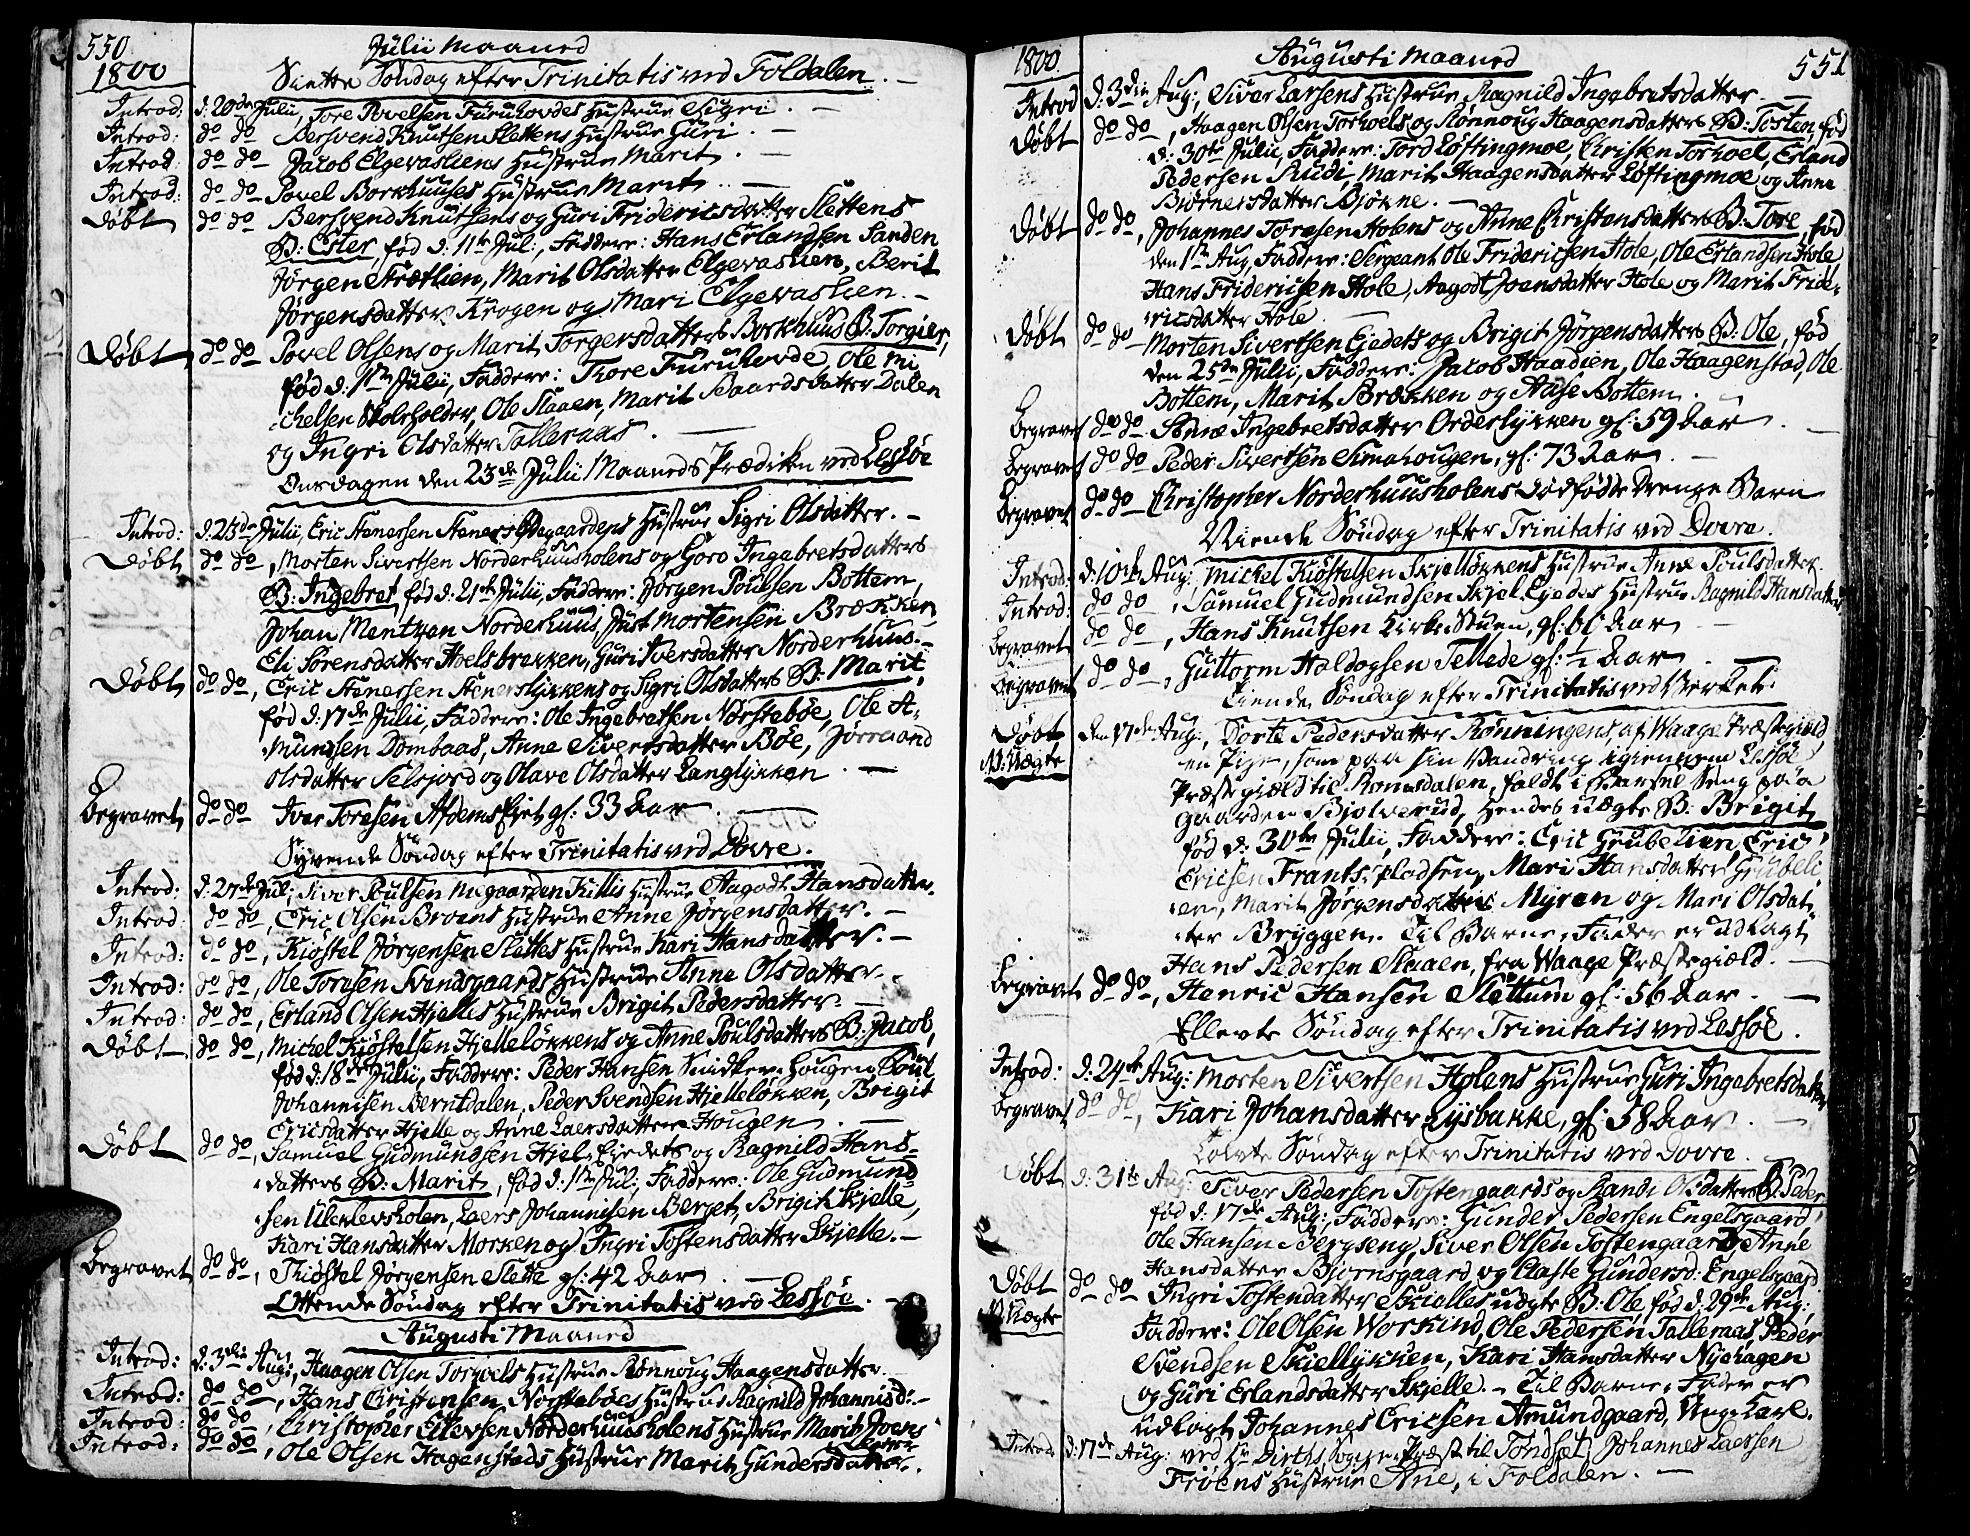 550
1800
Julii Maaned
Siette Søndag efter Trinitatis ved Foldalen.
Introd: d: 20de Julii, Tore Povelsen Furuhovdes Hustrue Sigri.
Introd: do do Bersvend Knutsen Slettens Hustrue Guri.
Introd: do do Jacob Elgevasliens Hustrue Marit.
Introd: do do Povel Borkhuuses Hustrue Marit.
Døbt do do Bersvend Knutsens og Guri Fridericsdatter Slettens
B: Ester, fød d: 11te Jul:, Faddere: Hans Erlandsen Sanden
Jørgen Strætlien, Marit Olsdatter Elgevaslien, Berit
Jørgensdatter Krogen og Mari Elgevaslien.
Døbt do do Povel Olsens og Marit Torgersdatters Borkhuus B: Torgier,
fød d: 1ste Julii, Faddere: Thore Furuhovde, Ole Mi
chelsen Stolsholder, Ole Slaaen, Marit Baardsdatter Dalen
og Ingri Olsdatter Talleraas.
Onsdagen den 23de Julii Maaneds Prædiken ved Lessøe
Introd: d: 23de Julii, Eric Stenersen Steners Ødegaardens Hustrue Sigri Olsdatter.
Døbt do do, Morten Sivertsen Norderhuusholens og Goro Ingebretsdatters
B: Ingebret, fød d: 21de Julii, Faddere: Jørgen Poulsen Bottem,
Johan Mentzan Norderhuus, Just Mortensen Brækken,
Eli Sørensdatter Hoelsbrekken, Guri Iversdatter Norderhuus.
Døbt do do, Eric Stenersen Stenerslykkens og Sigri Olsdatters B: Marit,
fød d: 17de Julii, Faddere: Ole Ingebretsen Nørstebøe, Ole A-
mundsen Dombaas, Anne Sivertsdatter Bøe, Jørraand
Olsdatter Selsjord og Olave Olsdatter Langlykken.
Begravet do do Iver Toresen Afdems Ejet gl: 33 Aar.
Syvende Søndag efter Trinitatis ved Dovre.
Introd: d: 27de Jul:, Siver Poulsen Migaarden Killis Hustrue Aagodt Hansdatter.
Introd: do do, Eric Olsen Broens Hustrue Anne Jørgensdatter.
Introd: do do, Kiøstel Jørgensen Slettes Hustrue Kari Hansdatter.
Introd: do do, Ole Toresen Svendsgaards Hustrue Anne Olsdatter.
Introd: do do, Erland Olsen Hjelles Hustrue Brigit Pedersdatter.
Døbt do do, Michel Kjøstelsen Hjelleløkkens og Anne Poulsdatters B: Jacob,
fød d: 18de Julii, Faddere: Peder Hansen Snidker Hougen, Poul
Johannisen Berntdalen, Peder Svendsen Hjelleløkken, Brigit
Ericsdatter Hjelle og Anne Laersdatter Hougen.
Døbt do do, Samuel Gudmundsen Hjel Ejedets og Ragnild Hans-
datters B: Marit, fød d: 1ste Jul:, Faddere: Ole Gudmund
sen Uleklevsholen, Laers Johannisen Berget, Brigit Skjelle,
Kari Hansdatter Morken og Ingri Tostensdatter Skjelle.
Begravet do do, Thiøstel Jørgensen Slette gl: 42 Aar.
Ottende Søndag efter Trinitatis ved Lessøe.
Augusti Maaned
Introd: d: 3die Aug:, Haagen Olsen Torvoels Hustrue Rønnoug Haagensdatter
Introd: do do, Hans Christensen Nørstebøes Hustrue Ragnild Johannisd:
Introd: do do, Christopher Ellevsen Norderhuusholens Hustrue Marit Joens
datter
Introd: do do, Ole Olsen Hagenstads Hustrue Marit Gundersdatter.
1800
Augusti Maaned
551
Introd d: 3die Aug:, Siver Larsens Hustrue Ragnild Ingebretsdatter.
Døbt do do, Haagen Olsen Torvoels og Rønnoug Haagensdatters B: Tosten, fød
d: 30te Julii, Faddere: Tord Løftingmoe, Christen Torvoel, Erland
Pedersen Rudi, Marit Haagensdatter Løftingmoe og Anne
Biørnersdatter Bjøkne.
Døbt do do, Johannes Toresen Holens og Anne Christensdatters B: Tore, fød
den 1ste Aug, Faddere: Sergeant Ole Fridericsen Hole, Ole Erlandsen Hole
Hans Fridericsen Hole, Aagodt Joensdatter Hole og Marit Fride-
ricsdatter Hole.
Døbt do do Morten Sivertsen Ejedets og Brigit Jørgensdatters B: Ole, fød
den 25de Julii, Faddere: Jacob Haadien, Ole Haagenstad, Ole
Bottem, Marit Brækken og Aase Bottem.
Begravet do do Anne Ingebretsdatter Orderlykken gl: 59 Aar.
Begravet do do Peder Sivertsen Simahougen, gl: 73 Aar.
Begravet do do Christopher Norderhuusholens dødfødte Drenge Barn
Niende Søndag efter Trinitatis ved Dovre.
Introd: d: 10de Aug:, Michel Kiøstelsen Skjelløkkens Hustrue Anne Poulsdatter.
Introd: do do, Samuel Gudmundsen Skjel Ejedes Hustrue Ragnild Hansdatter
Begravet do do, Hans Knutsen Kirke Stuen, gl: 60 Aar
Begravet do do, Guttorm Haldogsen Tellede gl: 1/2 Aar
Tiende Søndag efter Trinitatis ved Verket.
Døbt den 17de Aug:, Dorte Pedersdatter Rønningens, af Waage Præstegield,
N: Uægte
en Pige, som paa sin Vandring igiennem Lessøe
Præstegield til Romsdalen, faldt i Barsel Seng paa
gaarden Bjolverud, hendes uægte B: Brigit
fød d: 30te Julii, Faddere: Eric Grubelien, Eric
Ericsen Frants pladsen, Mari Hansdatter Grubeli
en, Marit Jørgensdatter Myren og Mari Olsdat
ter Bryggen. Til Barne-Fader er udlagt
Hans Pedersen Slaaen, fra Waage Præstegield.
Begravet do do, Henric Hansen Slettum gl: 56 Aar.
Ellevte Søndag efter Trinitatis ved Lessøe.
Introd: d: 24de Aug: Morten Sivertsen Holens Hustrue Guri Ingebretsdatter
Begravet do do, Kari Johansdatter Lysbakke, gl: 58 Aar.
Tolvte Søndag efter Trinitatis ved Dovre.
Døbt d: 31te Aug: Siver Pedersen Tostengaards og Randi Olsdatters B: Peder,
fød d: 17de Aug:, Faddere: Gunder Pedersen Engelsgaard,
Ole Hansen Bergseng, Siver Olsen Tostengaard, Anne
Hansdatter Bjørnsgaard og Claste Gundersd: Engelsgaard.
Døbt do do Ingri Tostendatter Skielles udgte B: Ole, fød d: 29de Aug:
N: Uægte
Faddere: Ole Olsen Workind, Ole Pedersen Talleraas, Peder
Svendsen Skiellykken, Kari Hansdatter Nyehagen
og Guri Erlandsdatter Skjelle. Til Barne-Fader er
udlagt Johannes Ericsen Amundgaard, Unge Karl.
Introd d: 17de Aug: ved Hr Dirchs, Sogne-Præst til Tøndset, Johannes Laersen
Frøens Hustrue Ane, i Foldalen.